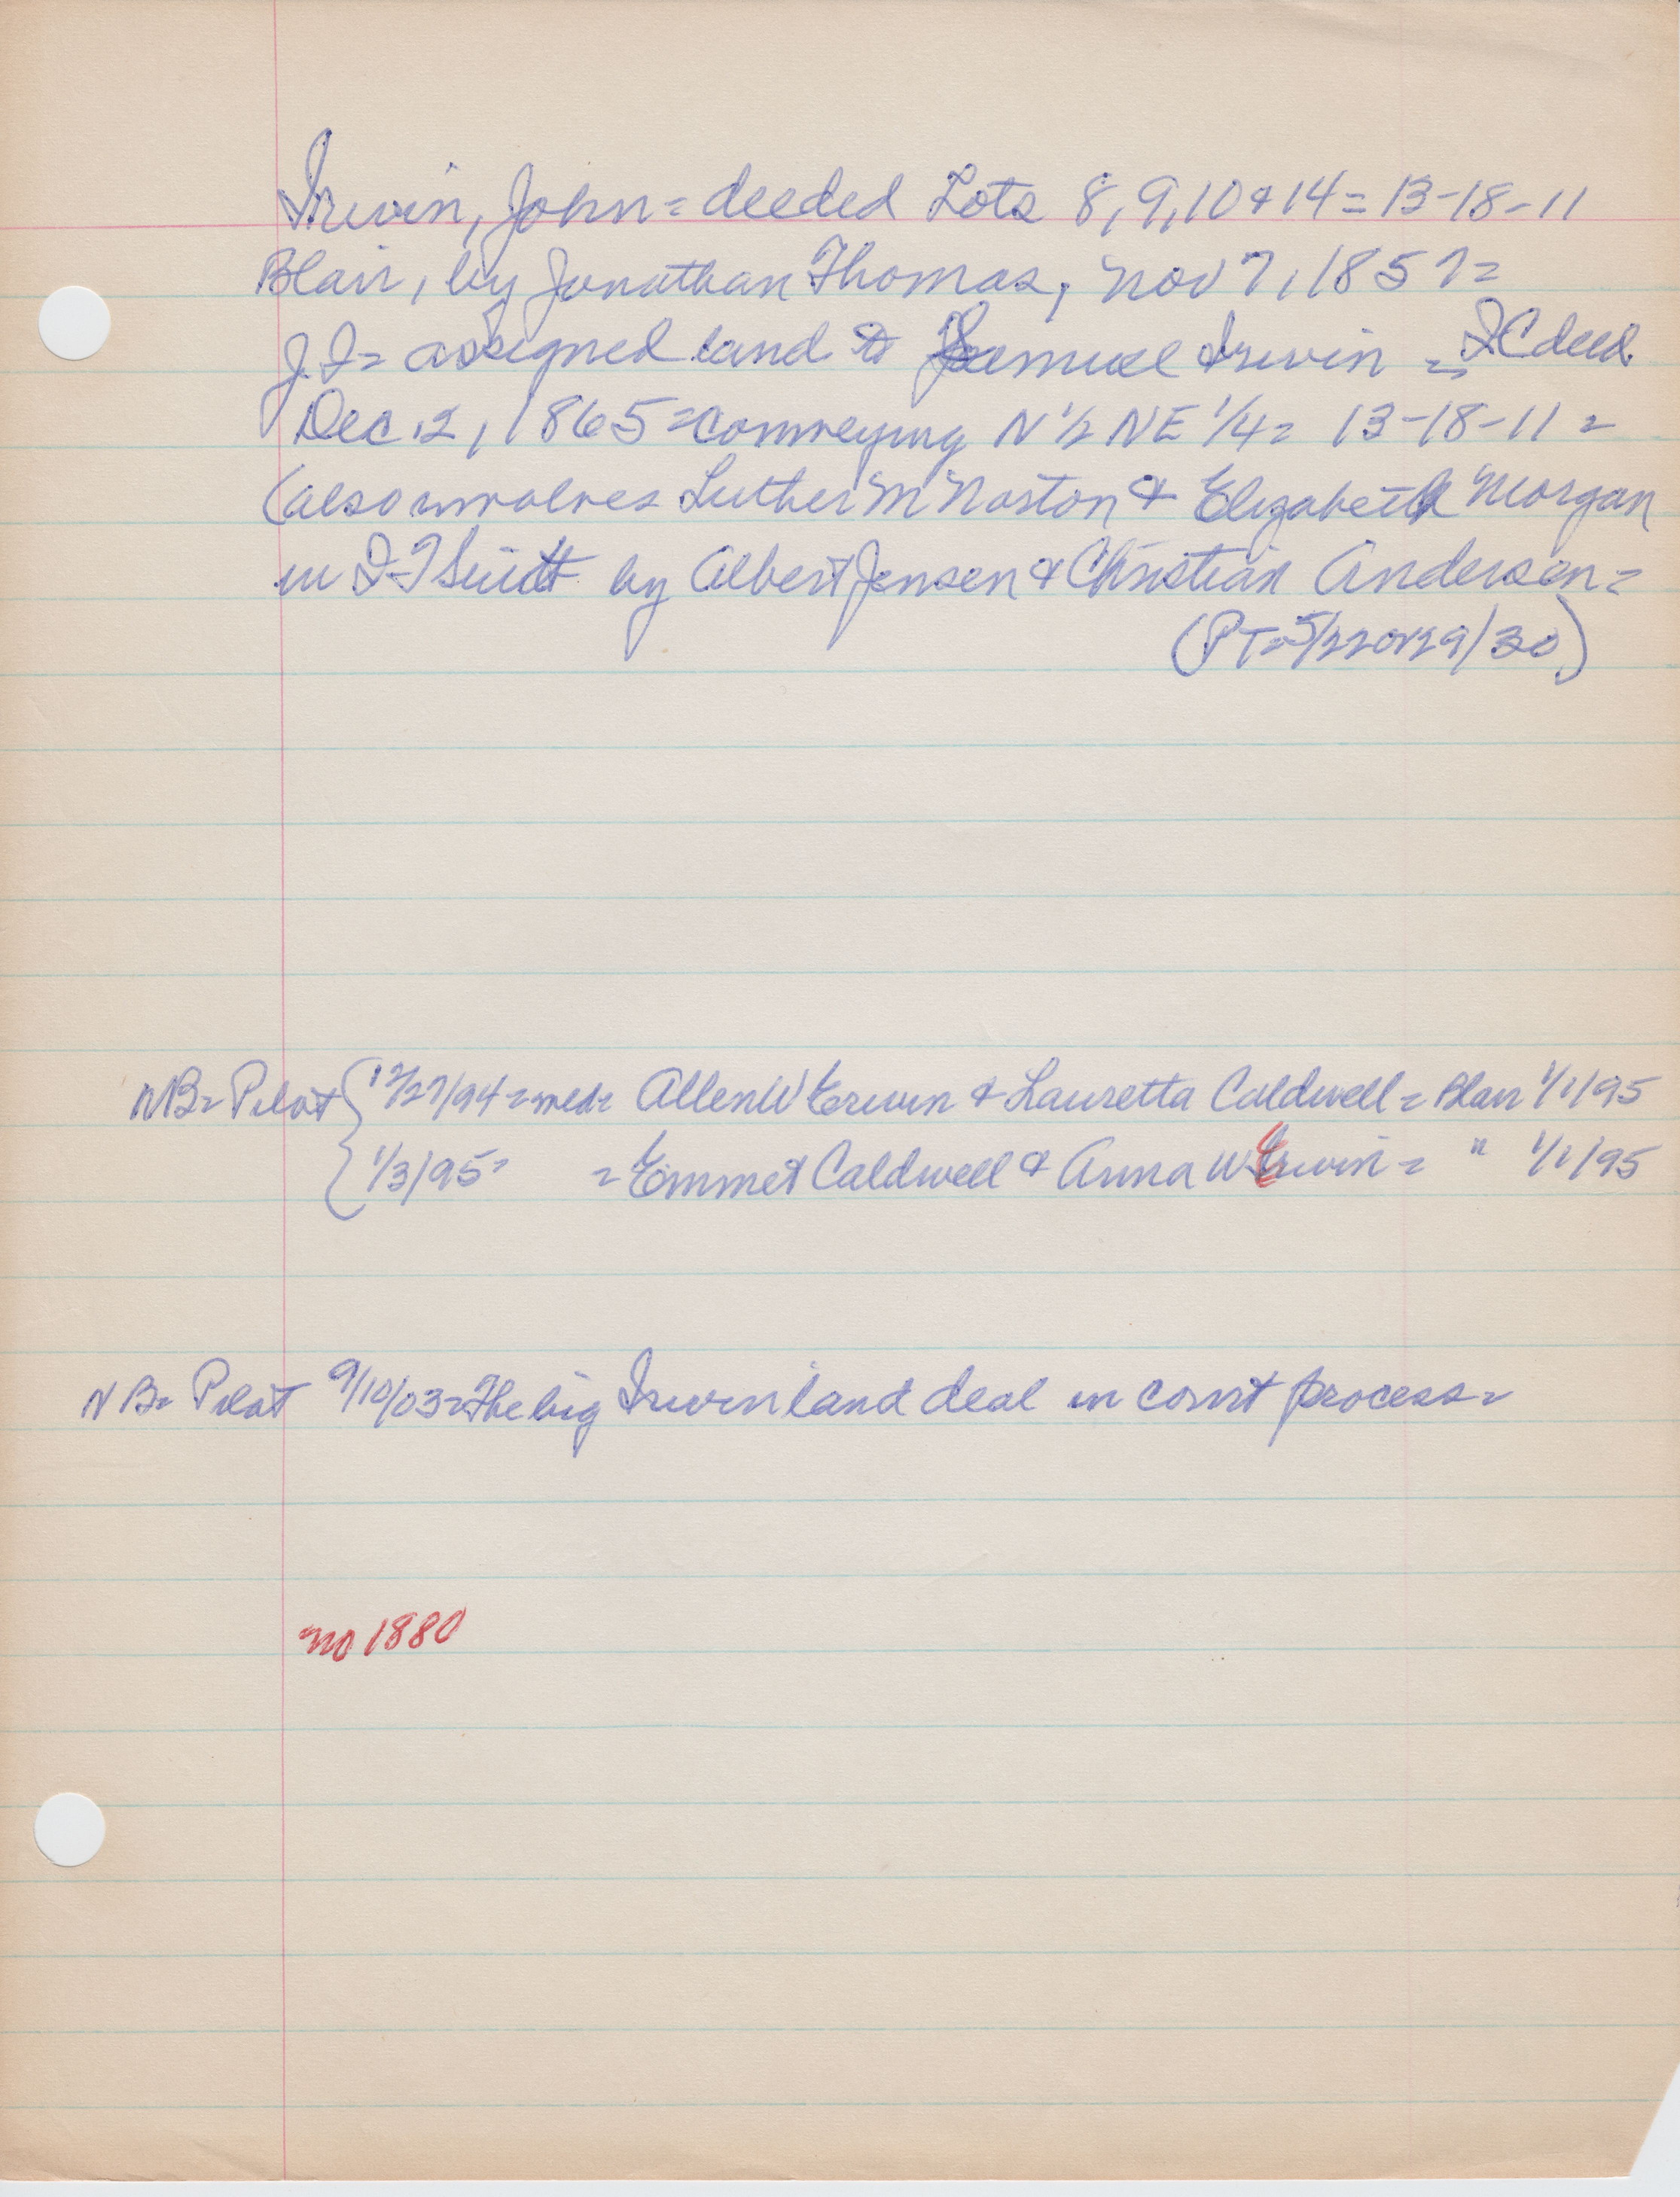 Irwin, John = deeded Lots 8, 9, 10 & 14 = 13-18-11
Blair, by Jonathan Thomas, Nov 7, 1857 =
J.I = assigned land to Samuel Irwin = Q C deed
Dec 2, 1865 = conveying N 1/2 NE 1/4 = 13-18-11 =
(also involves Luther M Norton & Elizabeth Morgan
in Q-T Suit by Albert Jensen & Christian Anderson =
(PT = 5/22 or 29/30)
NB = Pilot { 12/27/94 = med = Allen W Erwin & Lauretta Caldwell = Blair 1/1/95
{ 1/3/95 = = Emmet Caldwell & Anna W Erwin = " 1/1/95
NB = Pilot 9/10/03 = The big Irwin land deal in court process =
no 1880